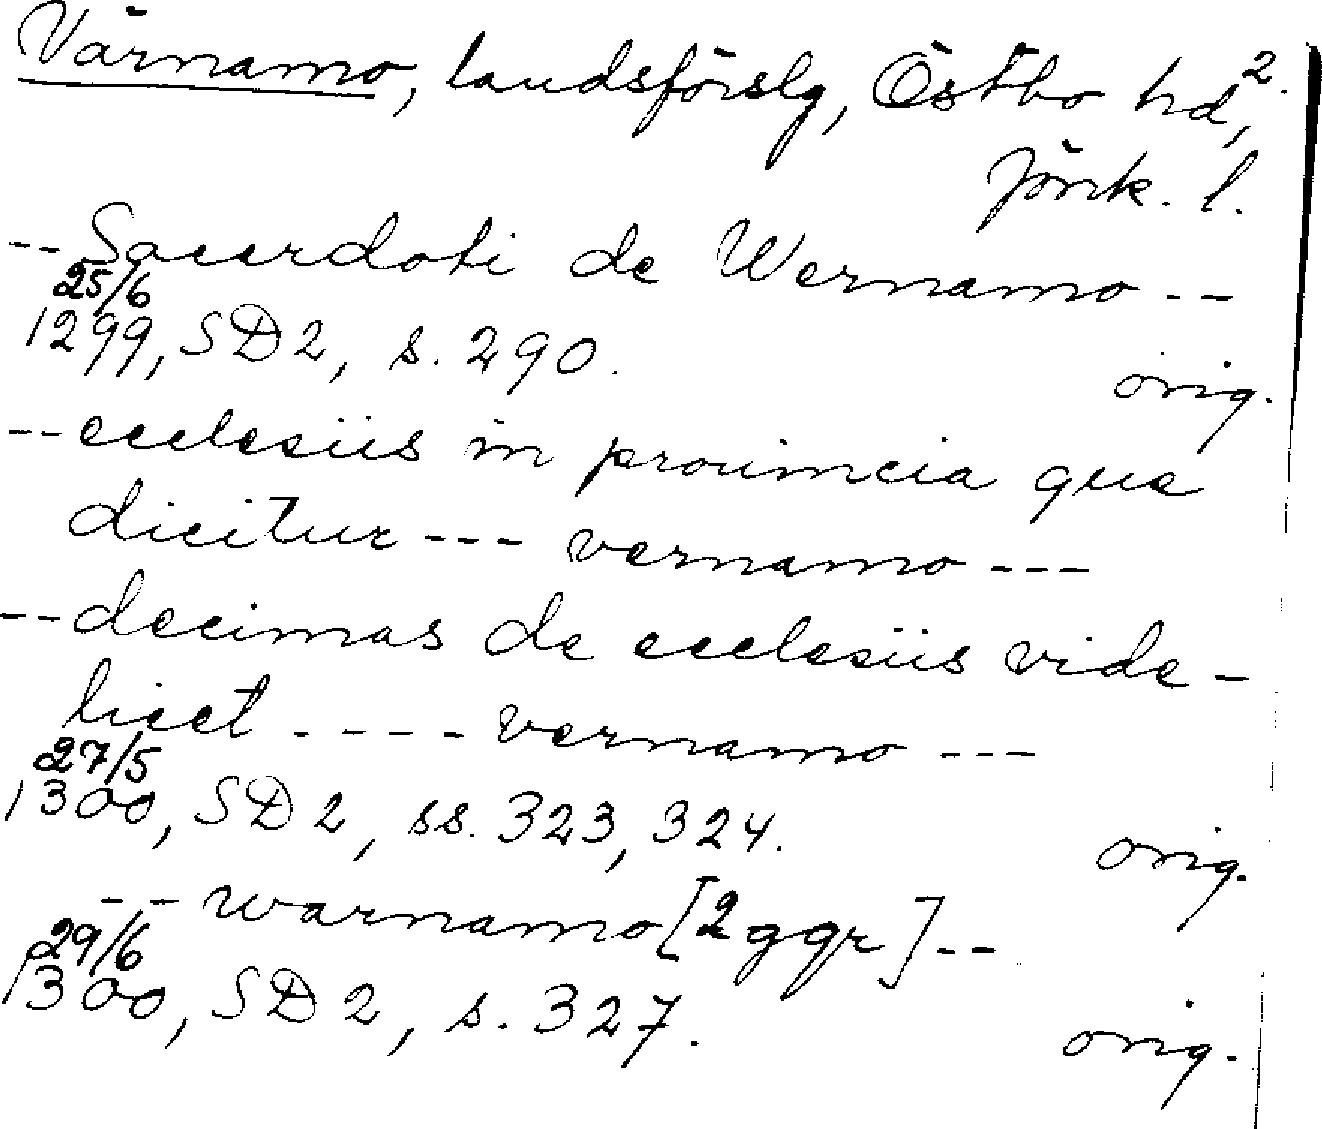 Värnamo, landsförslg, Östbo hd, 2.
Jönk. l.
-- Sacerdoti de Wernamo --
25/6
1299, SD 2, s. 290. orig.
-- ecclesiis in prouincia que
dicitur --- vernamo ---
-- decimas de ecclesiis vide-
licet ---- vernamo ---
27/5
1300, SD 2, ss. 323, 324. orig.
-- warnamo [2 ggr] --
29/6
1300, SD 2, s. 327. orig.